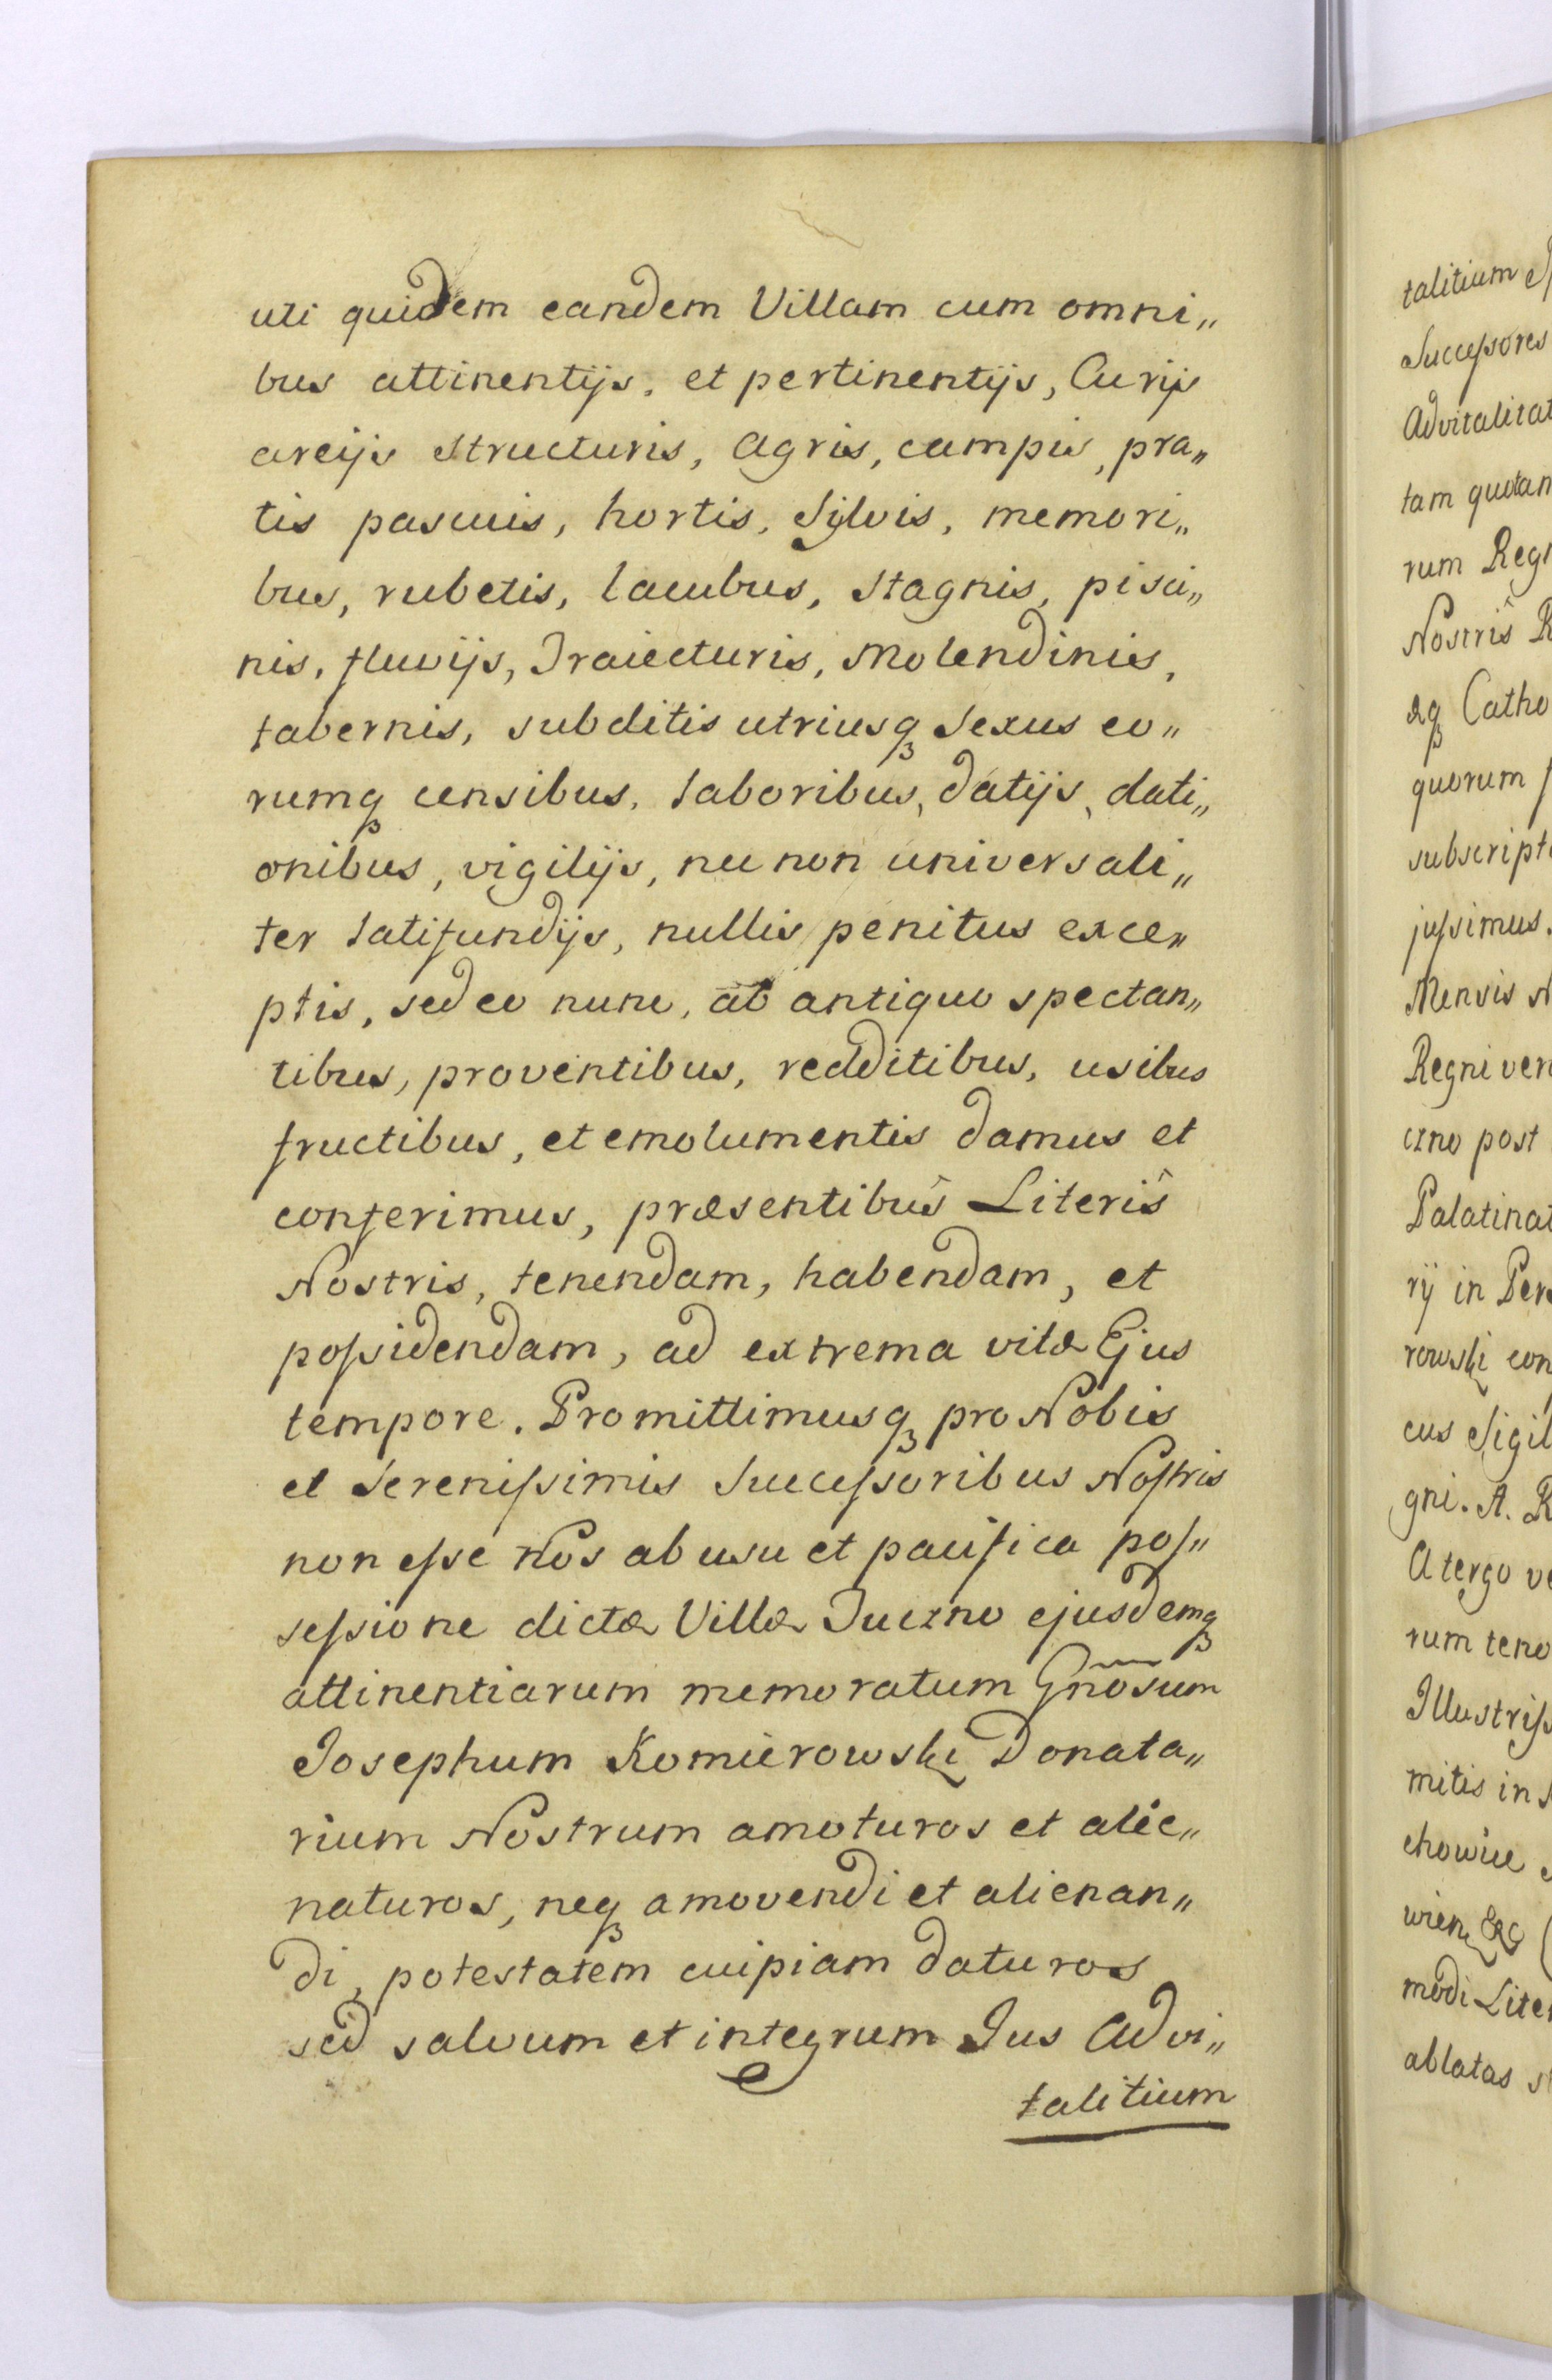 uti quidem eandem Villam cum omni„
bus attinentijs, et pertinentijs, Curijs
areijs structuris, Agris, campis, pra„
tis pascuis, hortis, Sylvis, memori„
bus, rubetis, lacubus, stagnis, pisci„
nis, fluvijs, Traiecturis, Molendinis,
tabernis, subditis utriusq Sexus eo„
rumq censibus, laboribus, datijs, dati„
onibus, vigilijs, nec non universali„
ter latifundijs, nullis penitus exce„
ptis, sed eo nunc, ab antiquo spectan„
tibus, proventibus, redditibus, usibus
fructibus, et emolumentis damus et
conferimus, præsentibus Literis
Nostris, tenendam, habendam, et
possidendam, ad extrema vitæ Ejus
tempore. Promittimusq pro Nobis
et Serenissimis Successoribus Nostris
non esse Nos ab usu et pacifica pos„
sessione dictæ Villæ Juczno ejusdemq
attinentiarum memoratum Gnõsum
Josephum Komierowski Donata„
rium Nostrum amoturos et alie„
naturos, neq amovendi et alienan„
di, potestatem cuipiam daturos
sed salvum et integrum Jus Advi„
talitium
talitium
Successores
Advitalitat
tam quotan
rum Regn
Nostris R
æq Catho
quorum
subscript
jussimus.
Mensis N
Regni ver
czno post
Palatinat
rij in Per
rowski con
cus Sigil
gni. A. R
A tergo ve
rum teno
Illustriss
mitis in
chowice
wien &c (
modi Liter
ablatas